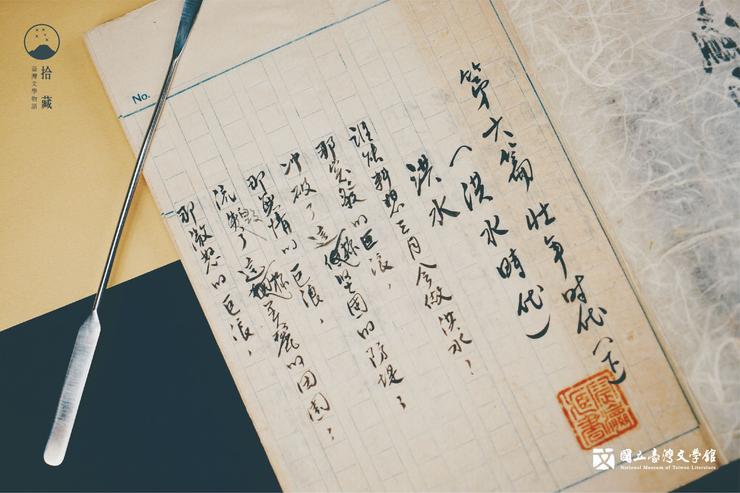 拾藏
臺灣文學物語
No.
第六篇 壮年时代(下)
(洪水時代)
洪水
誰能料想三月会做洪水!
那突發的巨浪,
冲破了這樣坚固的防堤;
那無情的巨浪,
流毀了這樣美麗的田園;
那激怒的巨浪,
國立臺灣文學館
National Museum of Taiwan Literature